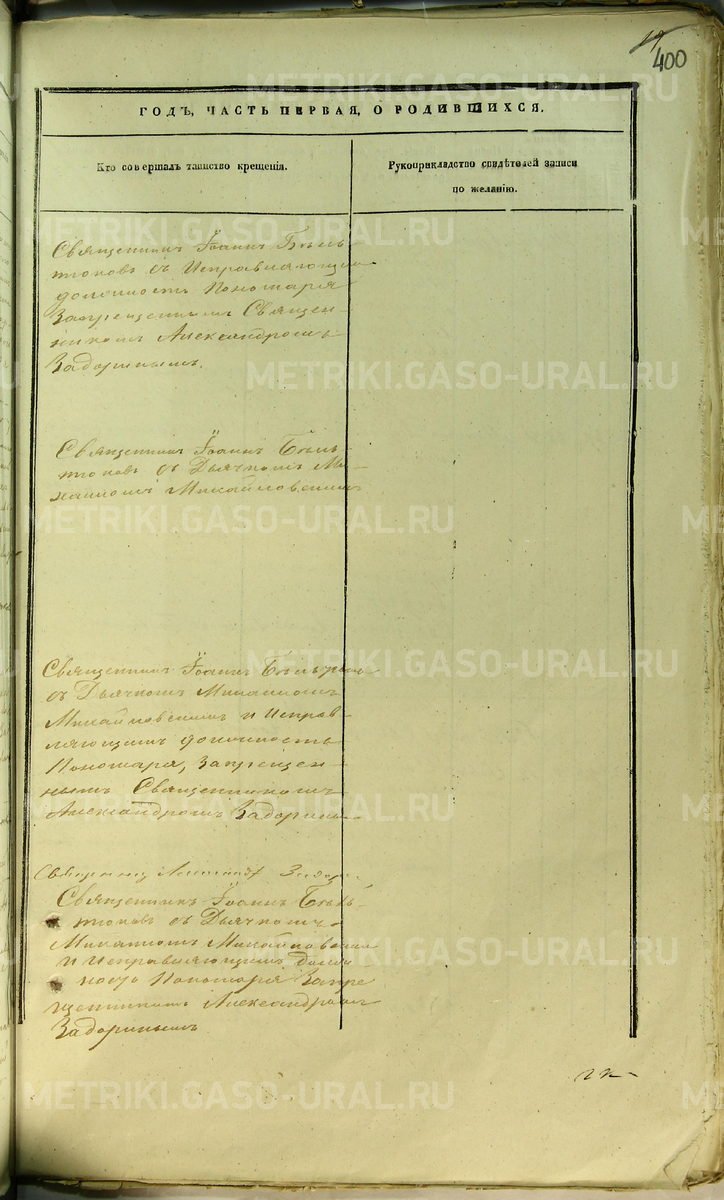 400
ГОДЪ, ЧАСТЬ ПЕРВАЯ, О РОДИВШИХСЯ.
Кто совершалъ таинство крещенія.
Рукоприкладство свидѣтелей записи
по желанію.
Священникъ Іоаннъ Бѣль-
тюковъ съ Исправляющимъ
должность Пономаря
Запрещеннымъ Священ-
никомъ Александромъ
Задоринымъ.
Священникъ Іоаннъ Бѣль-
тюковъ съ Дьячкомъ Ми-
хаиломъ Михайловскимъ
Священникъ Іоаннъ Бѣльтюковъ
съ Дьячкомъ Михаиломъ
Михайловскимъ и Исправ-
ляющимъ должность
Пономаря, Запрещен-
нымъ Священникомъ
Александромъ Задоринымъ
Священникъ Іоаннъ Бѣль-
тюковъ съ Дьячкомъ
Михаиломъ Михайловскимъ
и Исправляющимъ долж-
ность Пономаря Запре-
Александромъ
Задоринымъ
METRIKI.GASO-URAL.RU